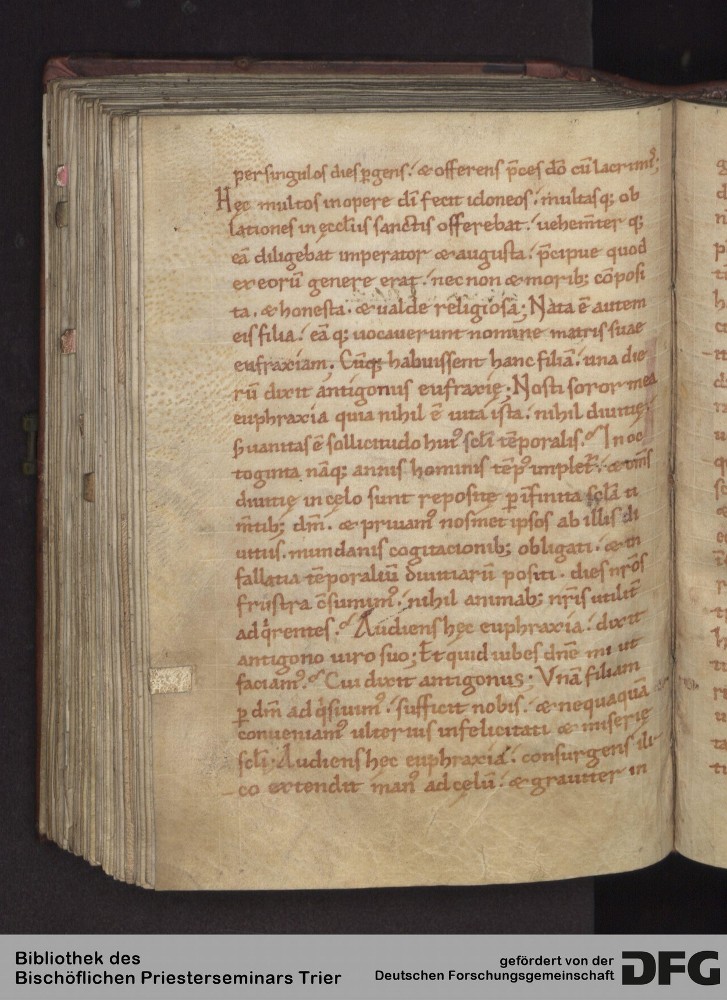 per singulos dies ꝑgens. & offerens p̄ces dō cū lacrimis;
Hęc multos in opere dī fecit idoneos. multasq; ob
lationes in ęccl̄iis sanctis offerebat. uehem̄ter q;
eā diligebat imperator & augusta. p̄cipue quod
ex eorū genere erat. nec non & morib; cōposi
ta. & honesta. & ualde religiosa; Nata ē autem
eis filia. eā q; uocauerunt nomine matris suae
eufraxiam; Cūq; habuissent hanc filiā. una die
rū dixit antigonus eufraxię; Nosti soror mea
euphraxia quia nihil ē uita ista. nihil diuitię.
& uanitas ē sollicitudo hui' scl̄i tēporalis. In oc
toginta nāq; annis hominis tēp' implet̄. & om̄s
diuitię in cęlo sunt repositę ꝑ infinita scl̄a ti
m̄tib; dm̄. & priuam' nosmet ipsos ab illis di
uitiis. mundanis cogitacionib; obligati. & in
fallatia tēporaliū diuitiarū positi. dies nr̄os
frustra c̄sumim'. nihil animab; nr̄is utilit̄
adq̄rentes. Audiens hęc euphraxia. dixit
antigono uiro suo; Et quid iubes dn̄e mi ut
faciam'. Cui dixit antigonus; Vnā filiam
ꝑ dm̄ adq̄siuim'. sufficit nobis. & nequaquā
conueniam' ulterius infelicitati & miserię
scl̄i; Audiens hęc euphraxia. consurgens ili
co extendit man' ad cęlū. & grauiter in
Bibliothek des
Bischöflichen Priesterseminars Trier
gefördert von der
Deutschen Forschungsgemeinschaft
DFG